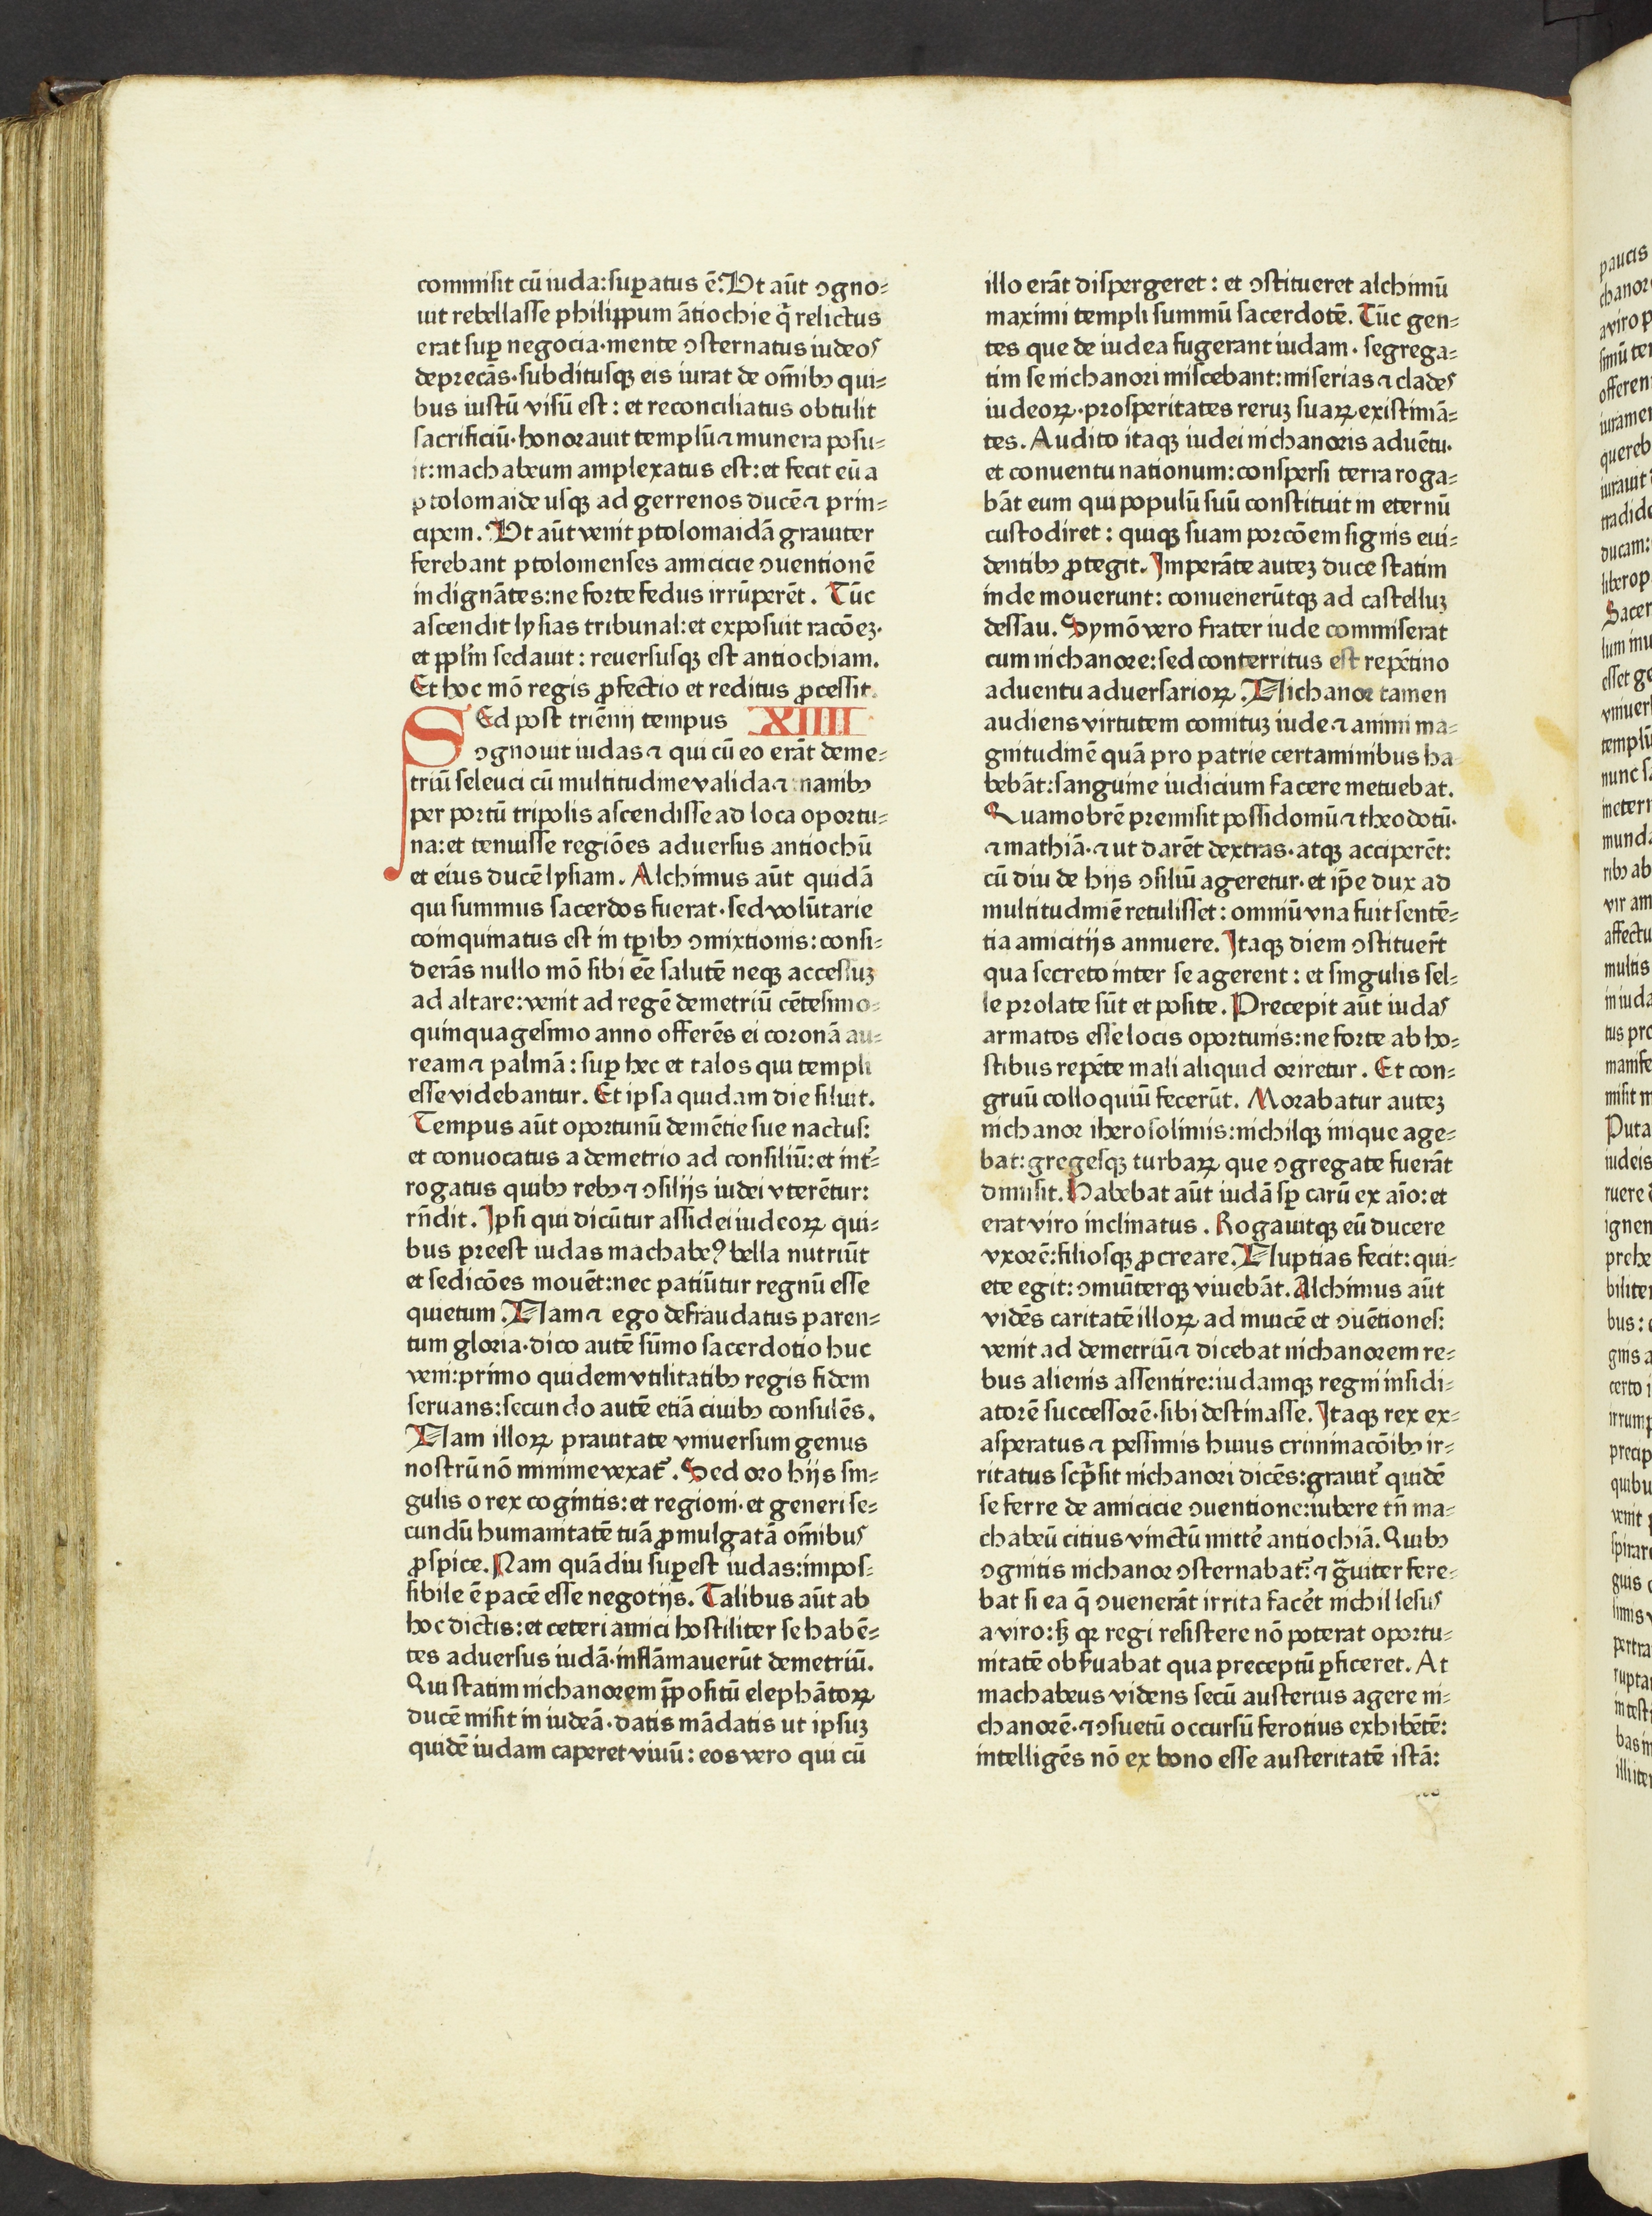 commisit cū iuda:suꝑatus ē. Ut aūt ꝯgno⸗
uit rebellasse philippum ātiochie q̄ relictus
erat suꝑ negocia·mente ꝯsternatus iudeos
deprecās·subditusqꝫ eis iurat de om̄ibꝰ qui⸗
bus iustū visū est: et reconciliatus obtulit
sacrificiū·honorauit templū⁊ munera posu⸗
it:machabeum amplexatus est:et fecit eū a
ptolomaide usqꝫ ad gerrenos ducē⁊ prin⸗
cipem. Ut aūt venit ptolomaidā grauiter
ferebant ptolomenses amicicie ꝯuentionē
indignātes:ne forte fedus irrūperēt. Tūc
ascendit lysias tribunal:et exposuit racōeꝫ·
et pplm̄ sedauit: reuersusqꝫ est antiochiam.
Et hoc mō regis ꝓfectio et reditus ꝓcessit.
SEd post triēnij tempus XIIII
ꝯgnouit iudas⁊ qui cū eo erāt deme⸗
triū seleuci cū multitudine valida⁊ nauibꝰ
per portū tripolis ascendisse ad loca oportu⸗
na:et tenuisse regiōes aduersus antiochū
et eius ducē lysiam. Alchimus aūt quidā
qui summus sacerdos fuerat·sed volūtarie
coinquinatus est in tꝑibꝰ ꝯmixtionis: consi⸗
derās nullo mō sibi eē salutē neqꝫ accessuꝫ
ad altare:venit ad regē demetriū cētesimo⸗
quinquagesimo anno offerēs ei coronā au⸗
ream⁊ palmā: suꝑ hec et talos qui templi
esse videbantur. Et ipsa quidam die siluit.
Tempus aūt oportunū demētie sue nactus:
et conuocatus a demetrio ad consiliū:et int̄⸗
rogatus quibꝰ rebꝰ⁊ ꝯsilijs iudei vterētur:
rn̄dit. Ipsi qui dicūtur assidei iudeoꝝ qui⸗
bus preest iudas machabeꝰ bella nutriūt
et sedicōes mouēt:nec patiūtur regnū esse
quietum. Nam⁊ ego defraudatus paren⸗
tum gloria·dico autē sūmo sacerdotio huc
veni:primo quidem vtilitatibꝰ regis fidem
seruans:secundo autē etiā ciuibꝰ consulēs.
Nam illoꝝ prauitate vniuersum genus
nostrū nō minime vexat᷑. Sed oro hijs sin⸗
gulis o rex cognitis:et regioni·et generi se⸗
cundū humanitatē tuā ꝓmulgatā om̄ibus
ꝓspice. Nam quādiu suꝑest iudas:impos⸗
sibile ē pacē esse negotijs. Talibus aūt ab
hoc dictis:et ceteri amici hostiliter se habē⸗
tes aduersus iudā·inflāmauerūt demetriū.
Qui statim nichanorem p̄positū elephātoꝝ
ducē misit in iudeā·datis mādatis ut ipsuꝫ
quidē iudam caperet viuū: eos vero qui cū
illo erāt dispergeret: et ꝯstitueret alchimū
maximi templi summū sacerdotē. Tūc gen⸗
tes que de iudea fugerant iudam·segrega⸗
tim se nichanori miscebant:miserias⁊ clades
iudeoꝝ·prosperitates reruꝫ suaꝝ existimā⸗
tes. Audito itaqꝫ iudei nichanoris aduētu·
et conuentu nationum:conspersi terra roga⸗
bāt eum qui populū suū constituit in eternū
custodiret: quiqꝫ suam porcōem signis eui⸗
dentibꝰ ꝓtegit. Imperāte auteꝫ duce statim
inde mouerunt: conuenerūtqꝫ ad castelluꝫ
dessau. Symō vero frater iude commiserat
cum nichanore:sed conterritus est repētino
aduentu aduersarioꝝ. Nichanor tamen
audiens virtutem comituꝫ iude⁊ animi ma⸗
gnitudinē quā pro patrie certaminibus ha
bebāt:sanguine iudicium facere metuebat.
Quamobrē premisit possidomū⁊ theodotū·
⁊ mathiā·⁊ ut darēt dextras·atqꝫ acciperēt:
cū diu de hijs ꝯsiliū ageretur·et ip̄e dux ad
multitudinē retulisset: omniū vna fuit sentē⸗
tia amicitijs annuere. Itaqꝫ diem ꝯstituer̄t
qua secreto inter se agerent: et singulis sel⸗
le prolate sūt et posite. Precepit aūt iudas
armatos esse locis oportunis:ne forte ab ho⸗
stibus repēte mali aliquid oriretur. Et con⸗
gruū colloquiū fecerūt. Morabatur auteꝫ
nichanor iherosolimis:nichilqꝫ inique age⸗
bat:gregesqꝫ turbaꝝ que ꝯgregate fuerāt
dimisit. Habebat aūt iudā sꝑ carū ex aīo:et
erat viro inclinatus. Rogauitqꝫ eū ducere
vxorē:filiosqꝫ ꝓcreare. Nuptias fecit: qui⸗
ete egit: ꝯmuīterqꝫ viuebāt. Alchimus aūt
vidēs caritatē illoꝝ ad inuicē et ꝯuētiones:
venit ad demetriū⁊ dicebat nichanorem re⸗
bus alienis assentire:iudamqꝫ regni insidi⸗
atorē successorē·sibi destinasse. Itaqꝫ rex ex⸗
asperatus ⁊ pessimis huius criminacōibꝰ ir⸗
ritatus scp̄sit nichanori dicēs:grauit᷑ quidē
se ferre de amicicie ꝯuentione:iubere tn̄ ma⸗
chabeū citius vinctū mitte᷑ antiochiā. Quibꝰ
ꝯgnitis nichanor ꝯsternabat᷑:⁊ gͣuiter fere⸗
bat si ea q̄ ꝯuenerāt irrita face᷑t nichil lesus
a viro:sꝫ qꝛ regi resistere nō poterat oportu⸗
nitatē obẜuabat qua preceptū ꝑficeret. At
machabeus videns secū austerius agere ni⸗
chanorē·⁊ ꝯsuetū occursū ferotius exhibētē:
intelligēs nō ex bono esse austeritatē istā: